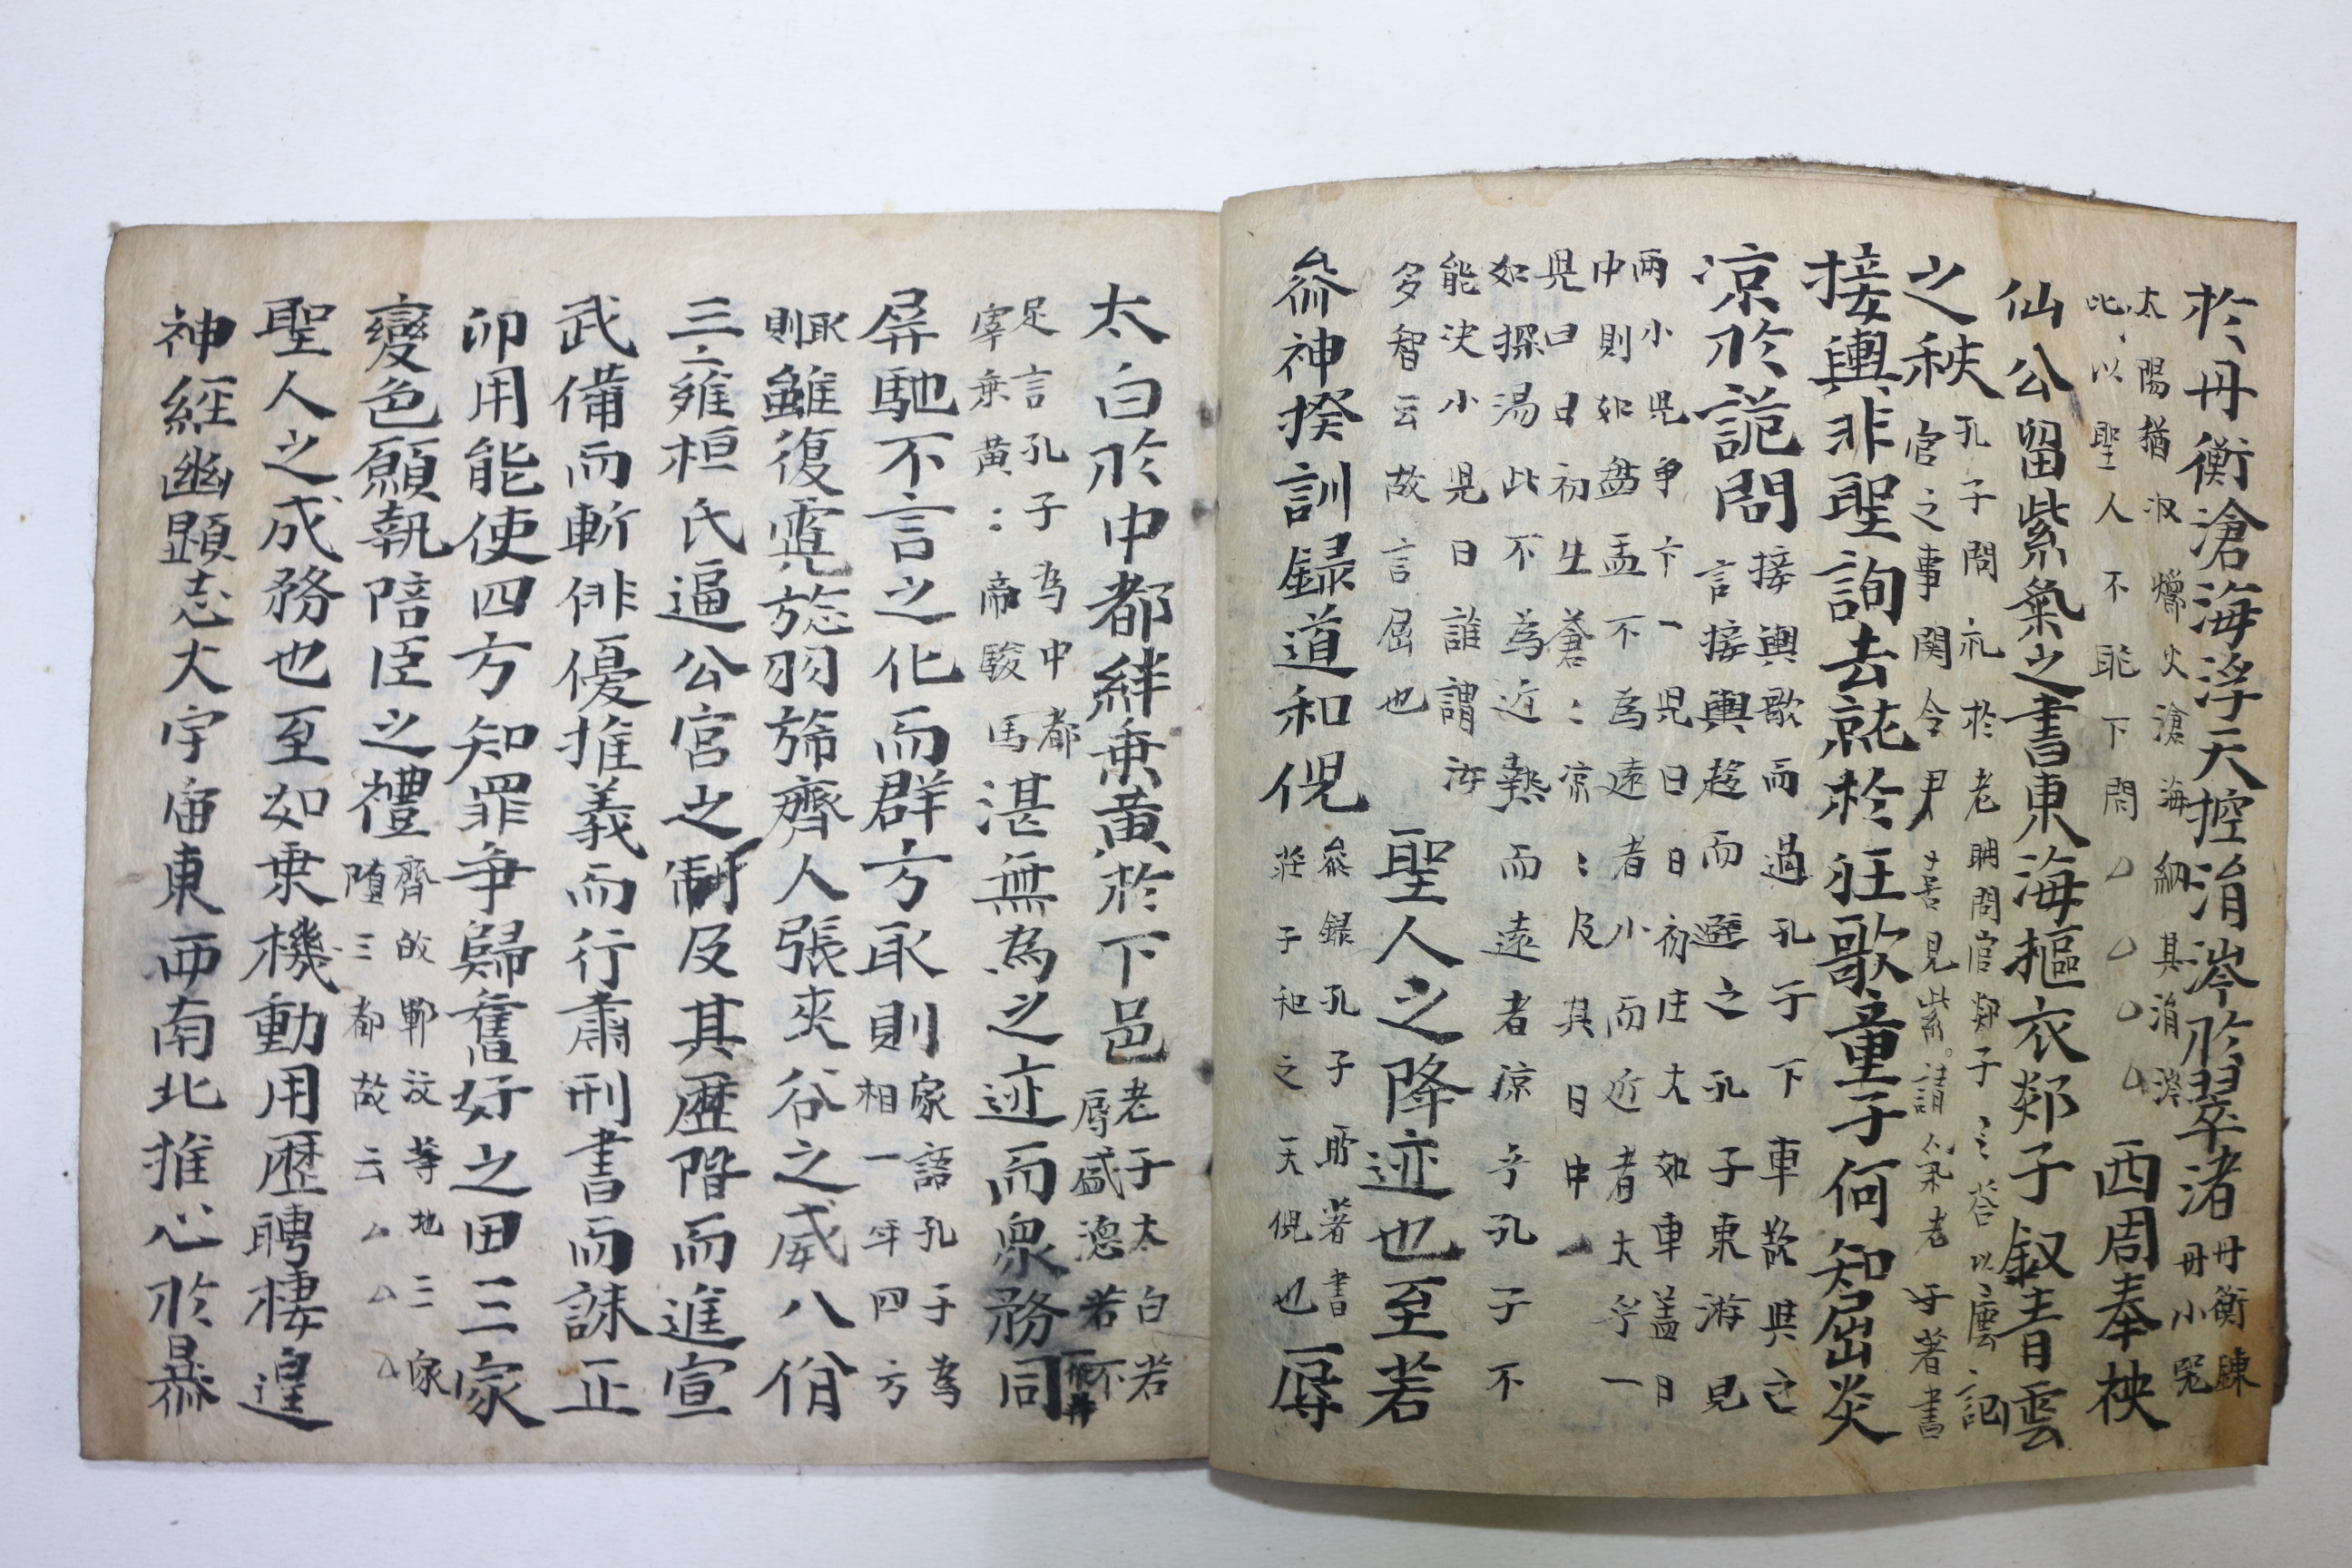 於丹衡滄海浮天控涓涔於翠渚丹衡鍊
丹小
太陽猶爝火滄海納其涓涔
此以聖人不恥下問 西周奉秧
仙公留紫氣之書東海摳衣郯子釵青雲
之秧孔子問礼於老聃問官郯子
官之事関令尹喜見紫氣請老子著書
接輿非聖詢去就於狂歌童子何知屈炎
凉於詭問接輿歌而過孔子下車欲與之
言接輿趍而避之孔子東游見
兩小児爭一児曰日初庄大如車盖日
中則如盤盂不為遠者小而近者大乎一
児曰日初生蒼〻凉〻及其日中
如探湯此不為近熱而遠者凉乎孔子不
能决小児曰誰謂汝
多智云故言屈也 聖人之降迹也至若
叅神揆訓録道和倪叅録孔子所著書
莊子和之天倪也辱
太白於中都絆乗黄於下邑老子太白若
辱盛德若不
足言孔子為中都
宰乗黄〻帝駿馬湛無為之迹而衆務同
屏馳不言之化而群方取則家語孔子為
相一年四方
取則雖復霓旌羽旆齊人張夾谷之威八佾
三雍桓氏逼公宮之制及其歴階而進宣
武備而斬俳優推義而行肅刑書而誅正
卯用能使四方知罪爭歸舊好之田三家
變色願執陪臣之禮齊故鄆汶等地三家
隨三都故云
聖人之成務也至如乗機動用歴聘棲遑
神經幽顕志大宇宙東西南北推心於暴